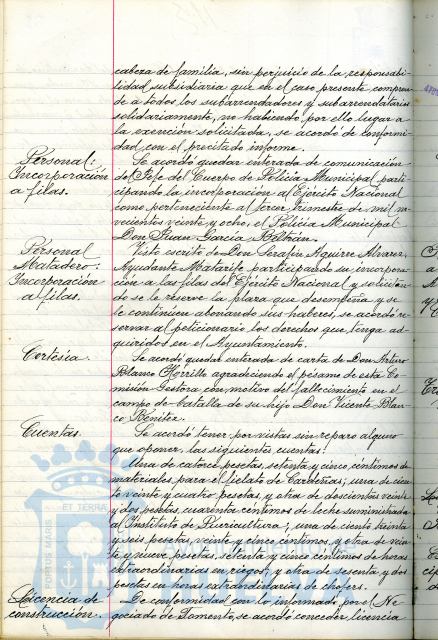 cabeza de familia, sin perjuicio de la responsabi-
lidad subsidiaria que en el caso presente compren-
de a todos los subarrendadores y subarrendatarios
solidariamente, no habiendo por ello lugar a
la exención solicitada, se acordó de conformi-
dad con el precitado informe.
Personal:
Incorporación
a filas.
Se acordó quedar enterada de comunicación
del Jefe del Cuerpo de Policía Municipal parti-
cipando la incorporación al Ejército Nacional
como perteneciente al tercer trimestre de mil no-
vecientos veinte y ocho, el Policía Municipal
Don Juan García Beltrán.
Personal
Matadero:
Incorporación
a filas.
Visto escrito de Don Serafín Aguirre Alvarez,
Ayudante Matarife participando su incorpora-
ción a las filas del Ejército Nacional y solicitan-
do se le reserve la plaza que desempeña y se
le continúen abonando sus haberes, se acordó re-
servar al peticionario los derechos que tenga ad-
quiridos en el Ayuntamiento.
Cortesía.
Se acordó quedar enterada de carta de Don Arturo
Blanco Horrillo agradeciendo el pésame de esta Co-
misión Gestora con motivo del fallecimiento en el
campo de batalla de su hijo Don Vicente Blan-
co Benítez.
Cuentas.
Se acordó tener por vistas sin reparo alguno
que oponer, las siguientes cuentas:
Una de catorce pesetas, setenta y cinco céntimos de
materiales para el fielato de Carberías; una de cien-
to veinte y cuatro pesetas, y otra de doscientas veinte
y dos pesetas, cuarenta céntimos de leche suministrada
al Instituto de Puericultura; una de ciento treinta
y seis pesetas, veinte y cinco céntimos, y otra de vein-
te y nueve pesetas, setenta y cinco céntimos de horas
extraordinarias en riegos; y otra de sesenta y dos
pesetas en horas extraordinarias de chofers.
Licencia de
construcción.
De conformidad con lo informado por el Ne-
gociado de Fomento, se acordó conceder licencia
ET TERRA
PORTUS MARIS